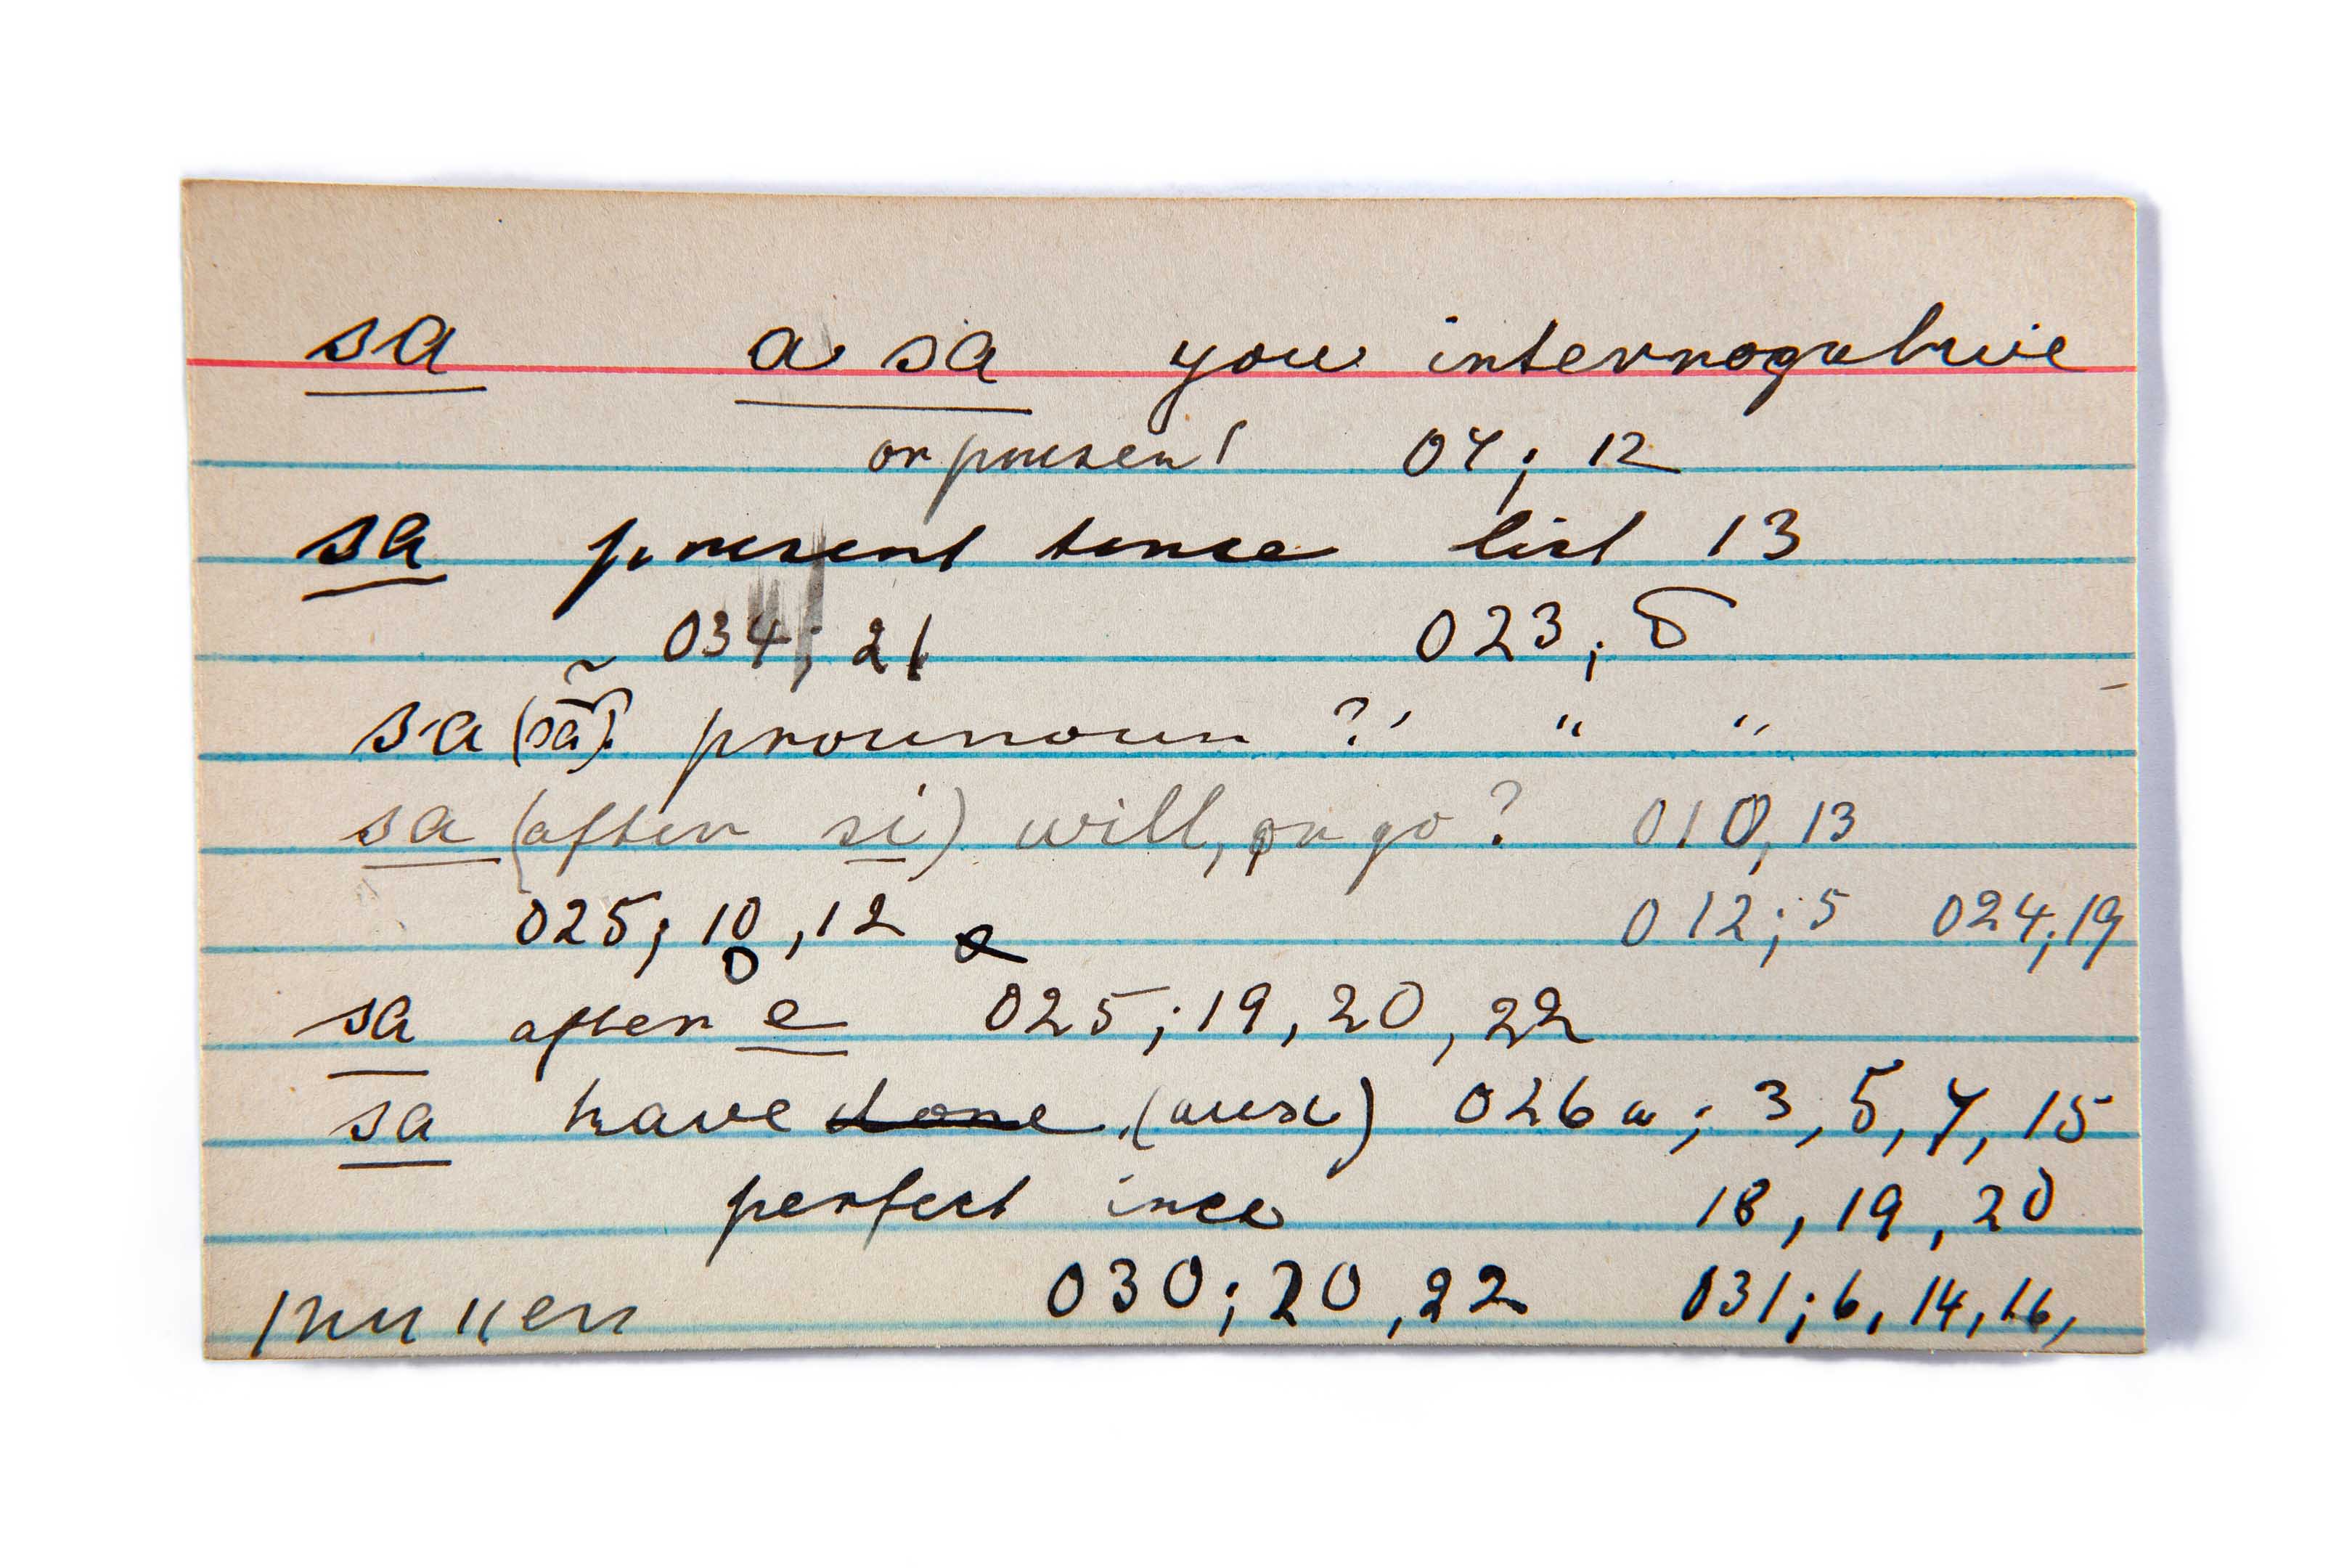 sa a sa you interrogative
or present 04; 12
sa present tense list 13
034; 21 023; 5
sa (sã). pronoun ? " "
sa (after si) will, or go? 010, 13
025; 10, 12 012; 5 024; 19
sa after e 025; 19, 20, 22
sa have done (aux) 026a; 3, 5, 7, 15
perfect 18, 19, 20
030; 20, 22 031; 6, 14, 16,